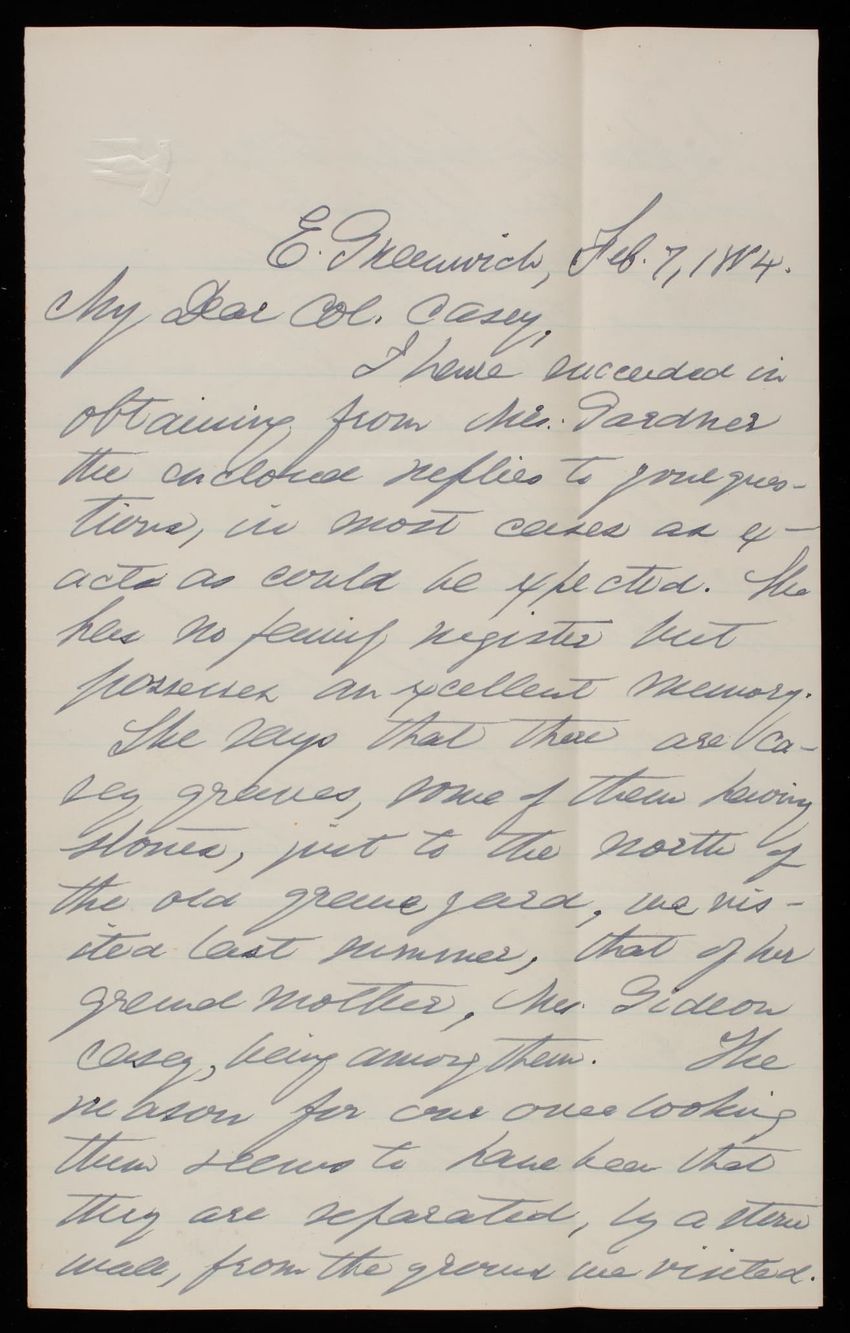 E. Greenwich, Feb. 7, 1884.
My Dear Col. Casey,
I have succeeded in
obtaining from Mrs. Gardner
the enclosed replies to your ques-
tions, in most cases as ex-
acts as could be expected. She
has no family register but
possesses an excellent memory.
She says that there are Ca-
sey graves, some of them having
stones, just to the north of
the old grave yard, we vis-
ited last summer, that of her
grand mother, Mrs. Gideon
Casey, being among them. The
reason for our over looking
them seems to have been that
they are separated, by a stone
wall, from the ground we visited.